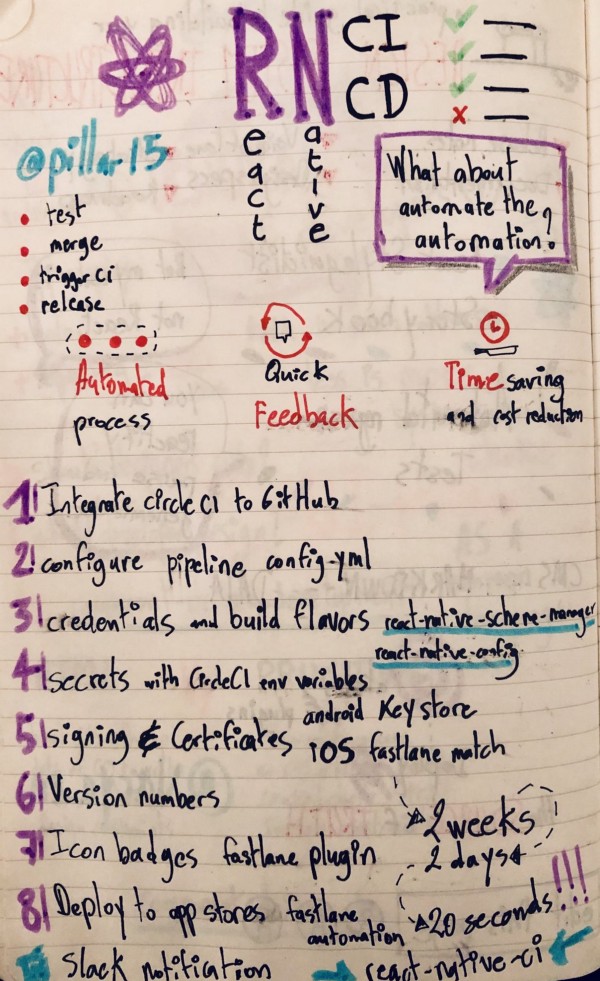 RN
eact
ative
CI
CD
@pillar15
test
merge
trigger ci
release
What about
automate the
automation?
Automated
process
Quick
Feedback
Time saving
and cost reduction
1| Integrate circle CI to GitHub
2| configure pipeline config.yml
3| credentials and build flavors react-native-scheme-manager
react-native-config
4| secrets with CircleCI env variables
5| signing & Certificates android Keystore
iOS fastlane match
6| Version numbers
7| Icon badges fastlane plugin
2 weeks
2 days
8| Deploy to app stores fastlane
automation
20 seconds!!!
Slack notification
react-native-ci